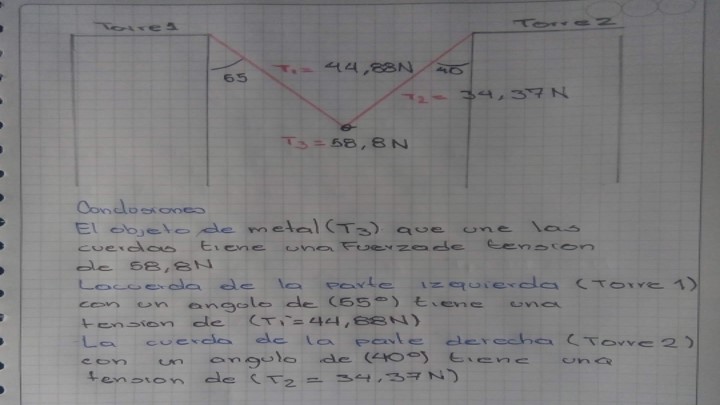 Torre 1
Torre 2
65
T₁ = 44,88N
40
T2 = 34,37N
T3 = 58,8N
Conclusiones
El objeto de metal (T3) que une las
cuerdas tiene una Fuerza de tension
de 58,8N
La cuerda de la parte izquierda (Torre 1)
con un angulo de (65º) tiene una
tension de (T₁ = 44,88N)
La cuerda de la parte derecha (Torre 2)
con un angulo de (40º) tiene una
tension de (T2 = 34,37N)